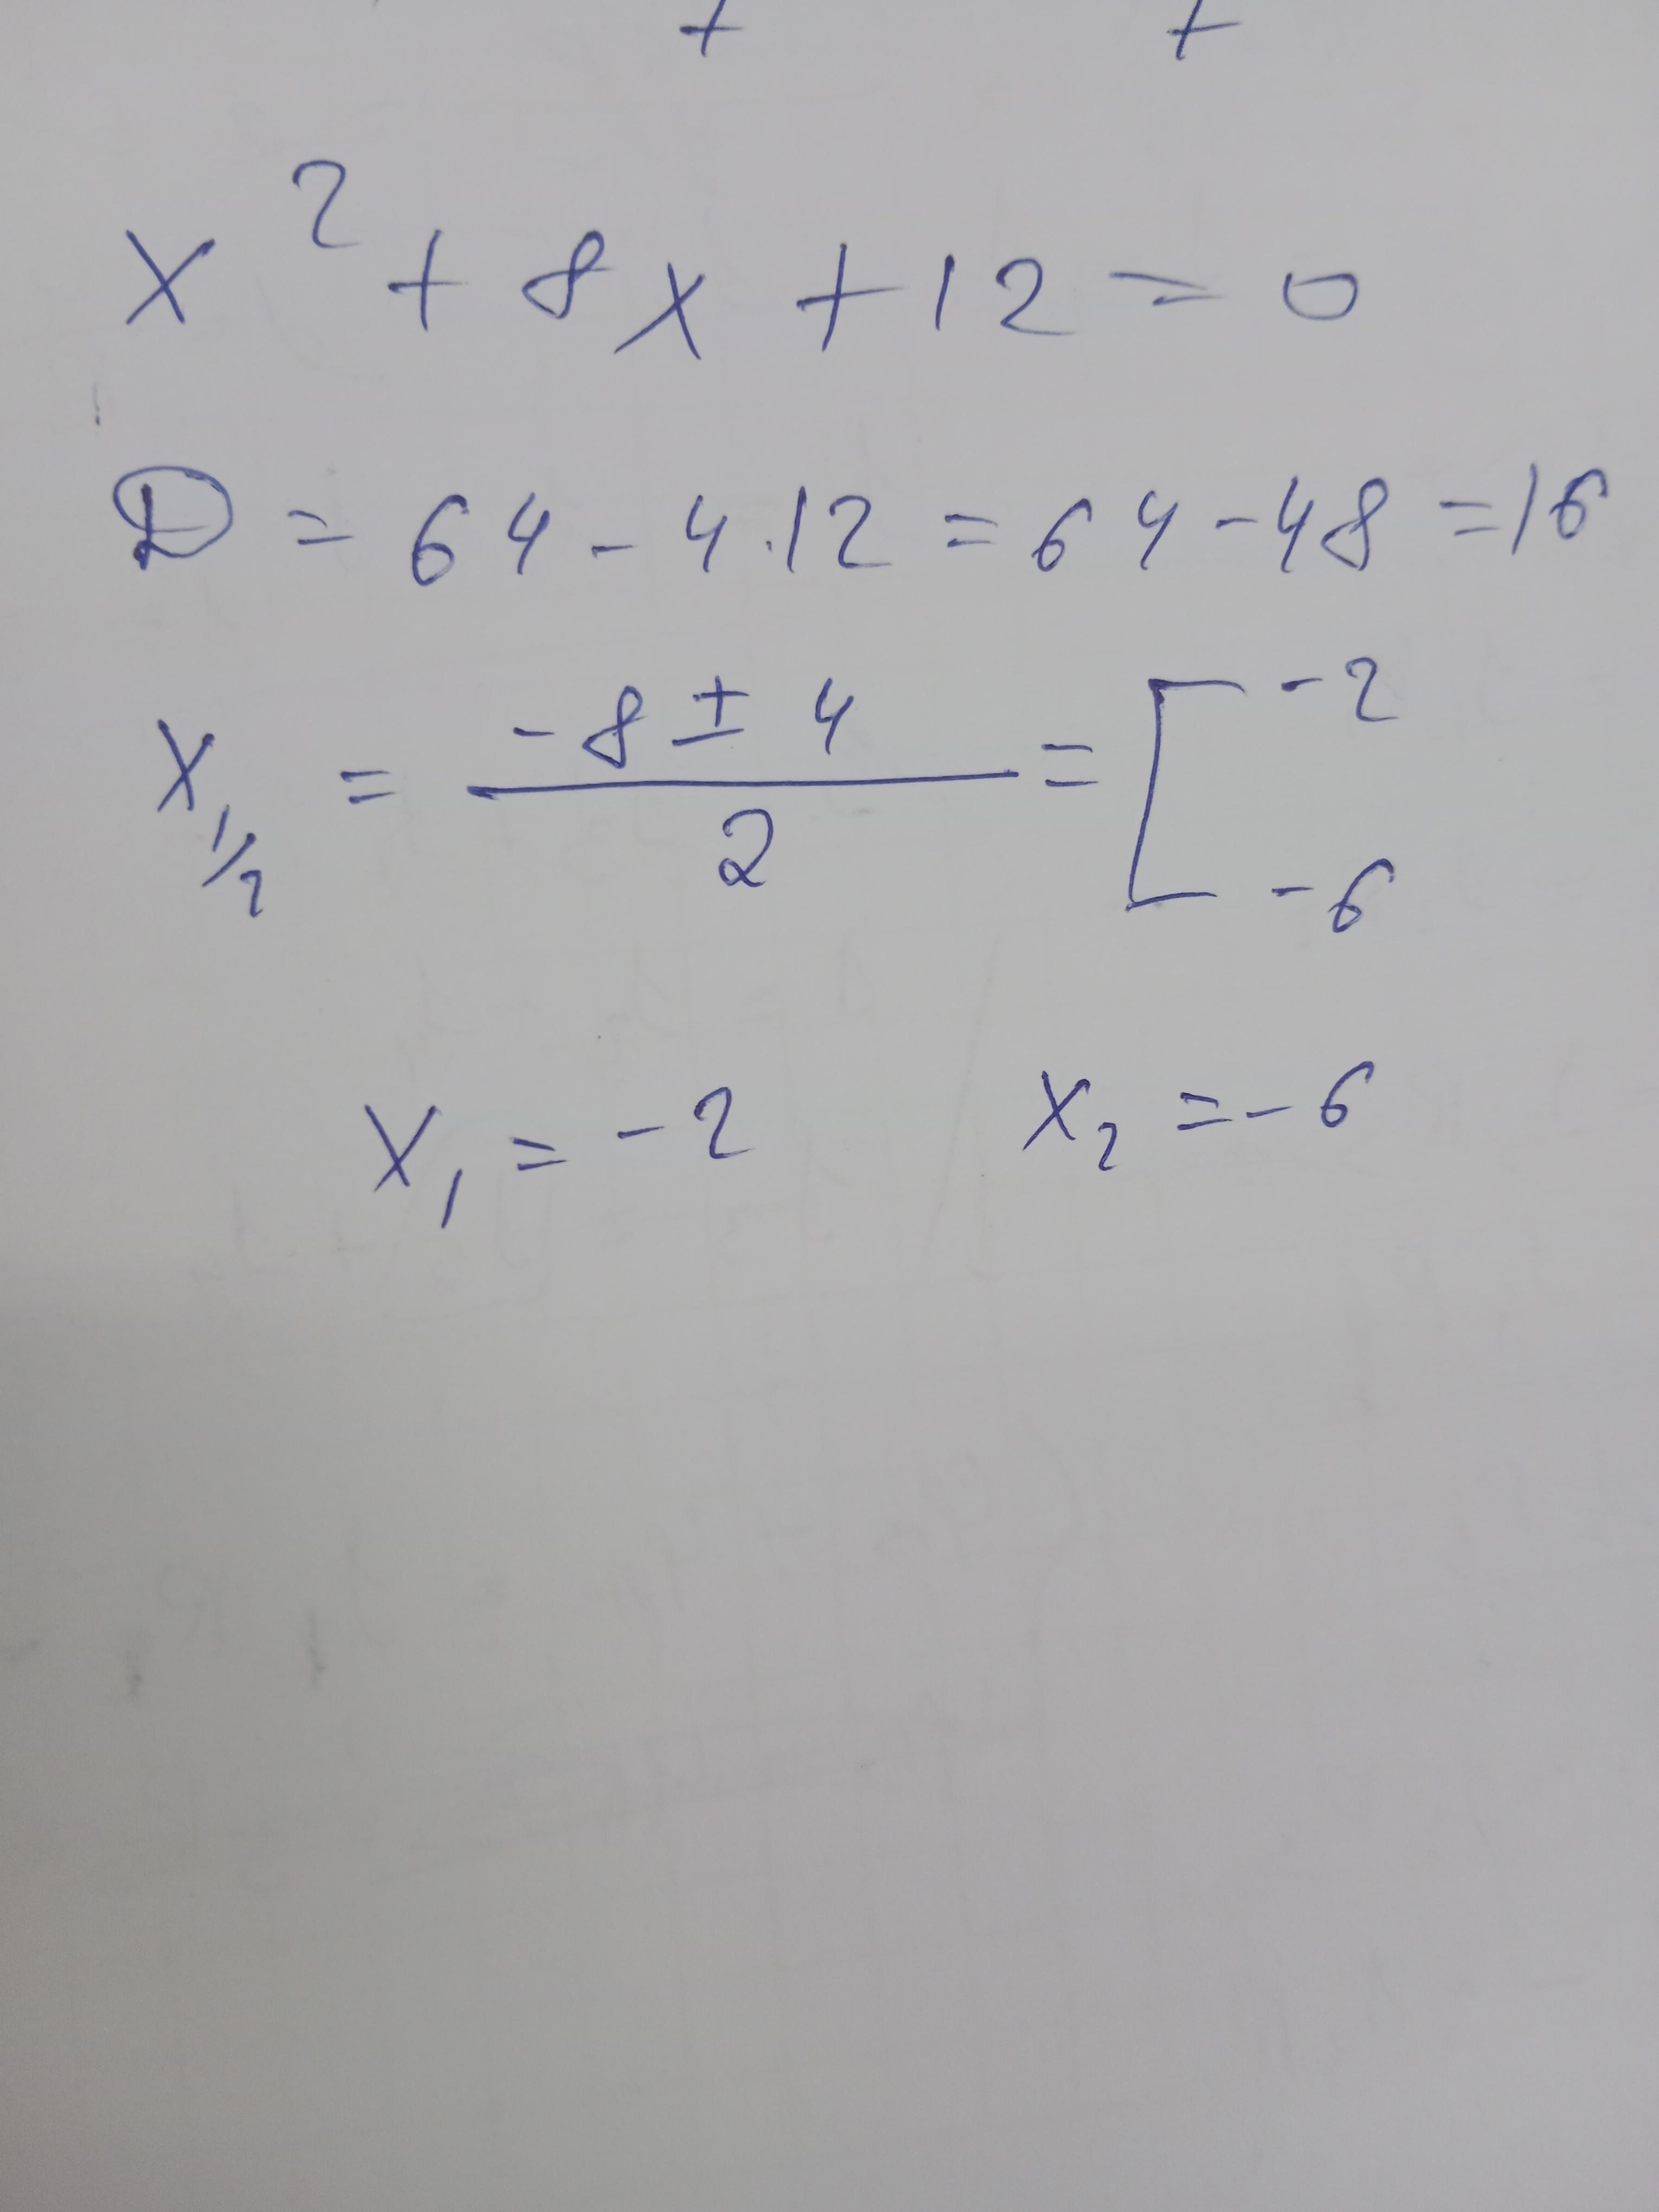 + +
x² + 8x + 12 = 0
D = 64 - 4 · 12 = 64 - 48 = 16
x₁/₂ = (-8 ± 4) / 2 = [ -2
-6
x₁ = -2 x₂ = -6